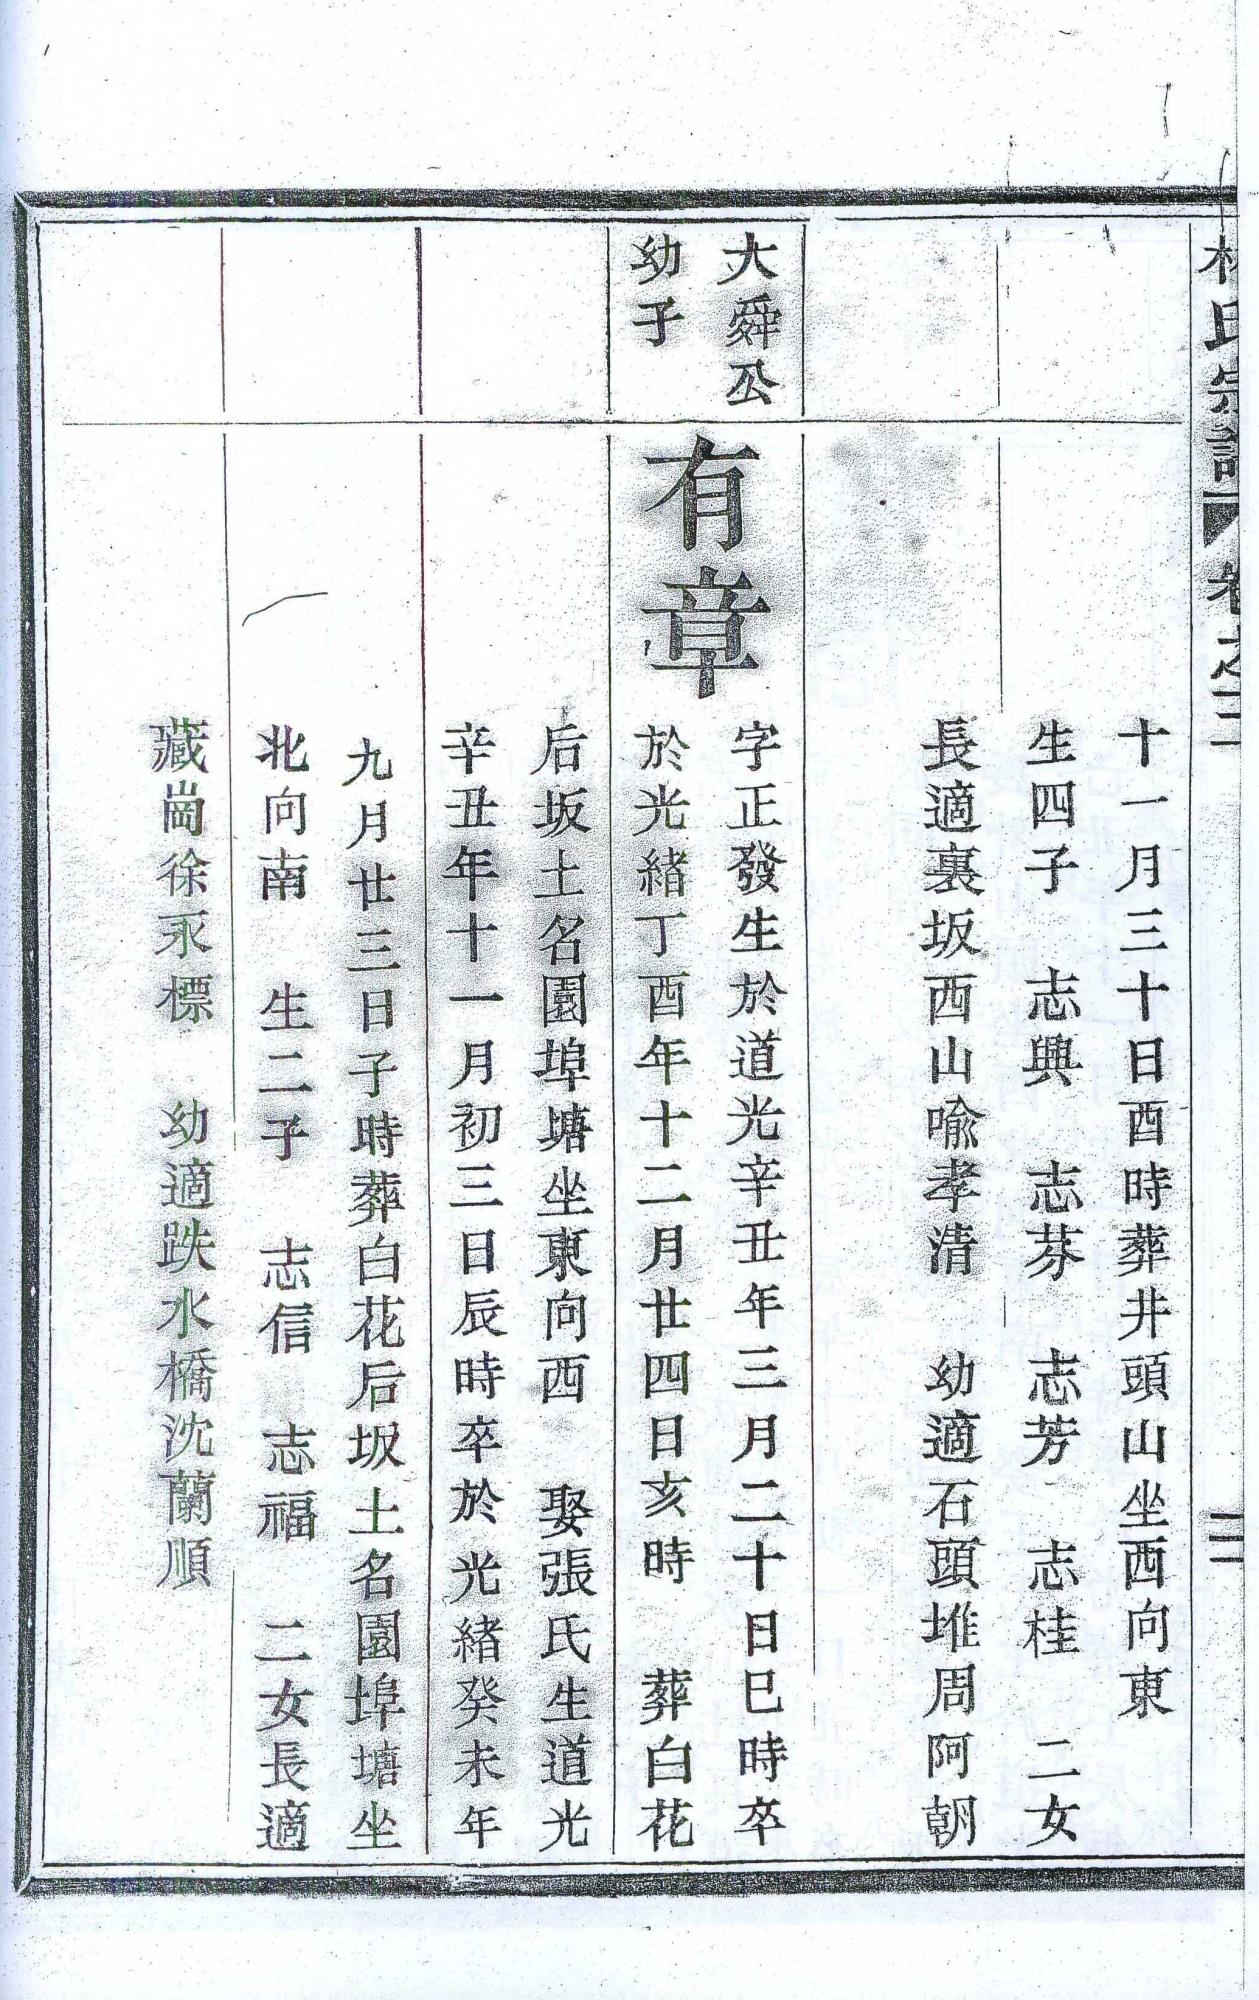 林氏宗譜 卷之二 二
十一月三十日酉時葬井頭山坐西向東
生四子 志興 志芬 志芳 志桂 二女
長適裏坂西山喻孝清 幼適石頭堆周阿朝
大舜公
幼子
有章
字正發生於道光辛丑年三月二十日巳時卒
於光緒丁酉年十二月廿四日亥時 葬白花
后坂土名園埠塘坐東向西 娶張氏生道光
辛丑年十一月初三日辰時卒於光緒癸未年
九月廿三日子時葬白花后坂土名園埠塘坐
北向南 生二子 志信 志福 二女長適
藏崗徐永標 幼適跌水橋沈蘭順